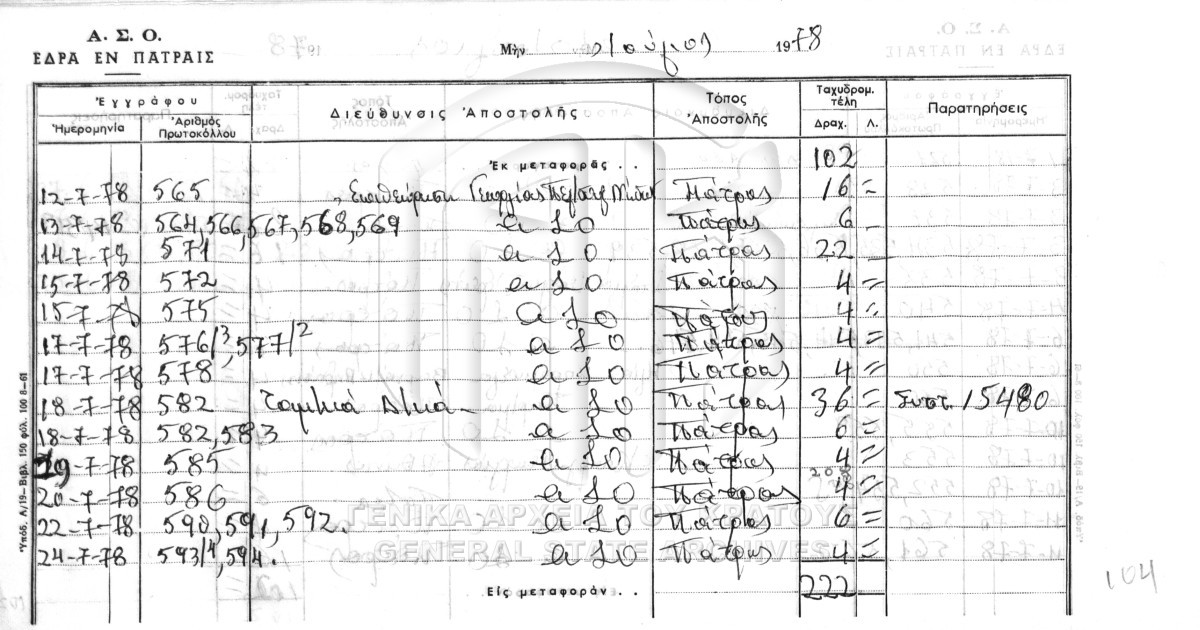 Α. Σ. Ο.
ΕΔΡΑ ΕΝ ΠΑΤΡΑΙΣ
Μὴν Ιούλιος 1978
Ἐγγράφου
Ἡμερομηνία Ἀριθμὸς Πρωτοκόλλου Διεύθυνσις Ἀποστολῆς Τόπος Ἀποστολῆς Ταχυδρομ. τέλη Δραχ. Λ. Παρατηρήσεις
Ἐκ μεταφορᾶς . . 102
12-7-78 565 Γεωργίας Πάτρας 16 =
13-7-78 564, 566, 567, 568, 569 Πάτρας 6
14-7-78 571 Πάτρας 22
15-7-78 572 Πάτρας 4 =
15-7-78 575 Πάτρας 4 =
17-7-78 576/3, 577/2 Πάτρας 4 =
17-7-78 578 Πάτρας 4 =
18-7-78 582 Πάτρας 36 = Συστ. 15480
18-7-78 582, 583 Πάτρας 6 =
19-7-78 585 Πάτρας 4 =
208
20-7-78 586 Πάτρας 4 =
22-7-78 590, 591, 592. Πάτρας 6 =
24-7-78 593/4, 594. Πάτρας 4 =
Εἰς μεταφοράν . . 222
104
Ὑπόδ. Α/19—Βιβλ. 150 φύλ. 100 8—61
ΓΕΝΙΚΑ ΑΡΧΕΙΑ ΤΟΥ ΚΡΑΤΟΥΣ
GENERAL STATE ARCHIVES